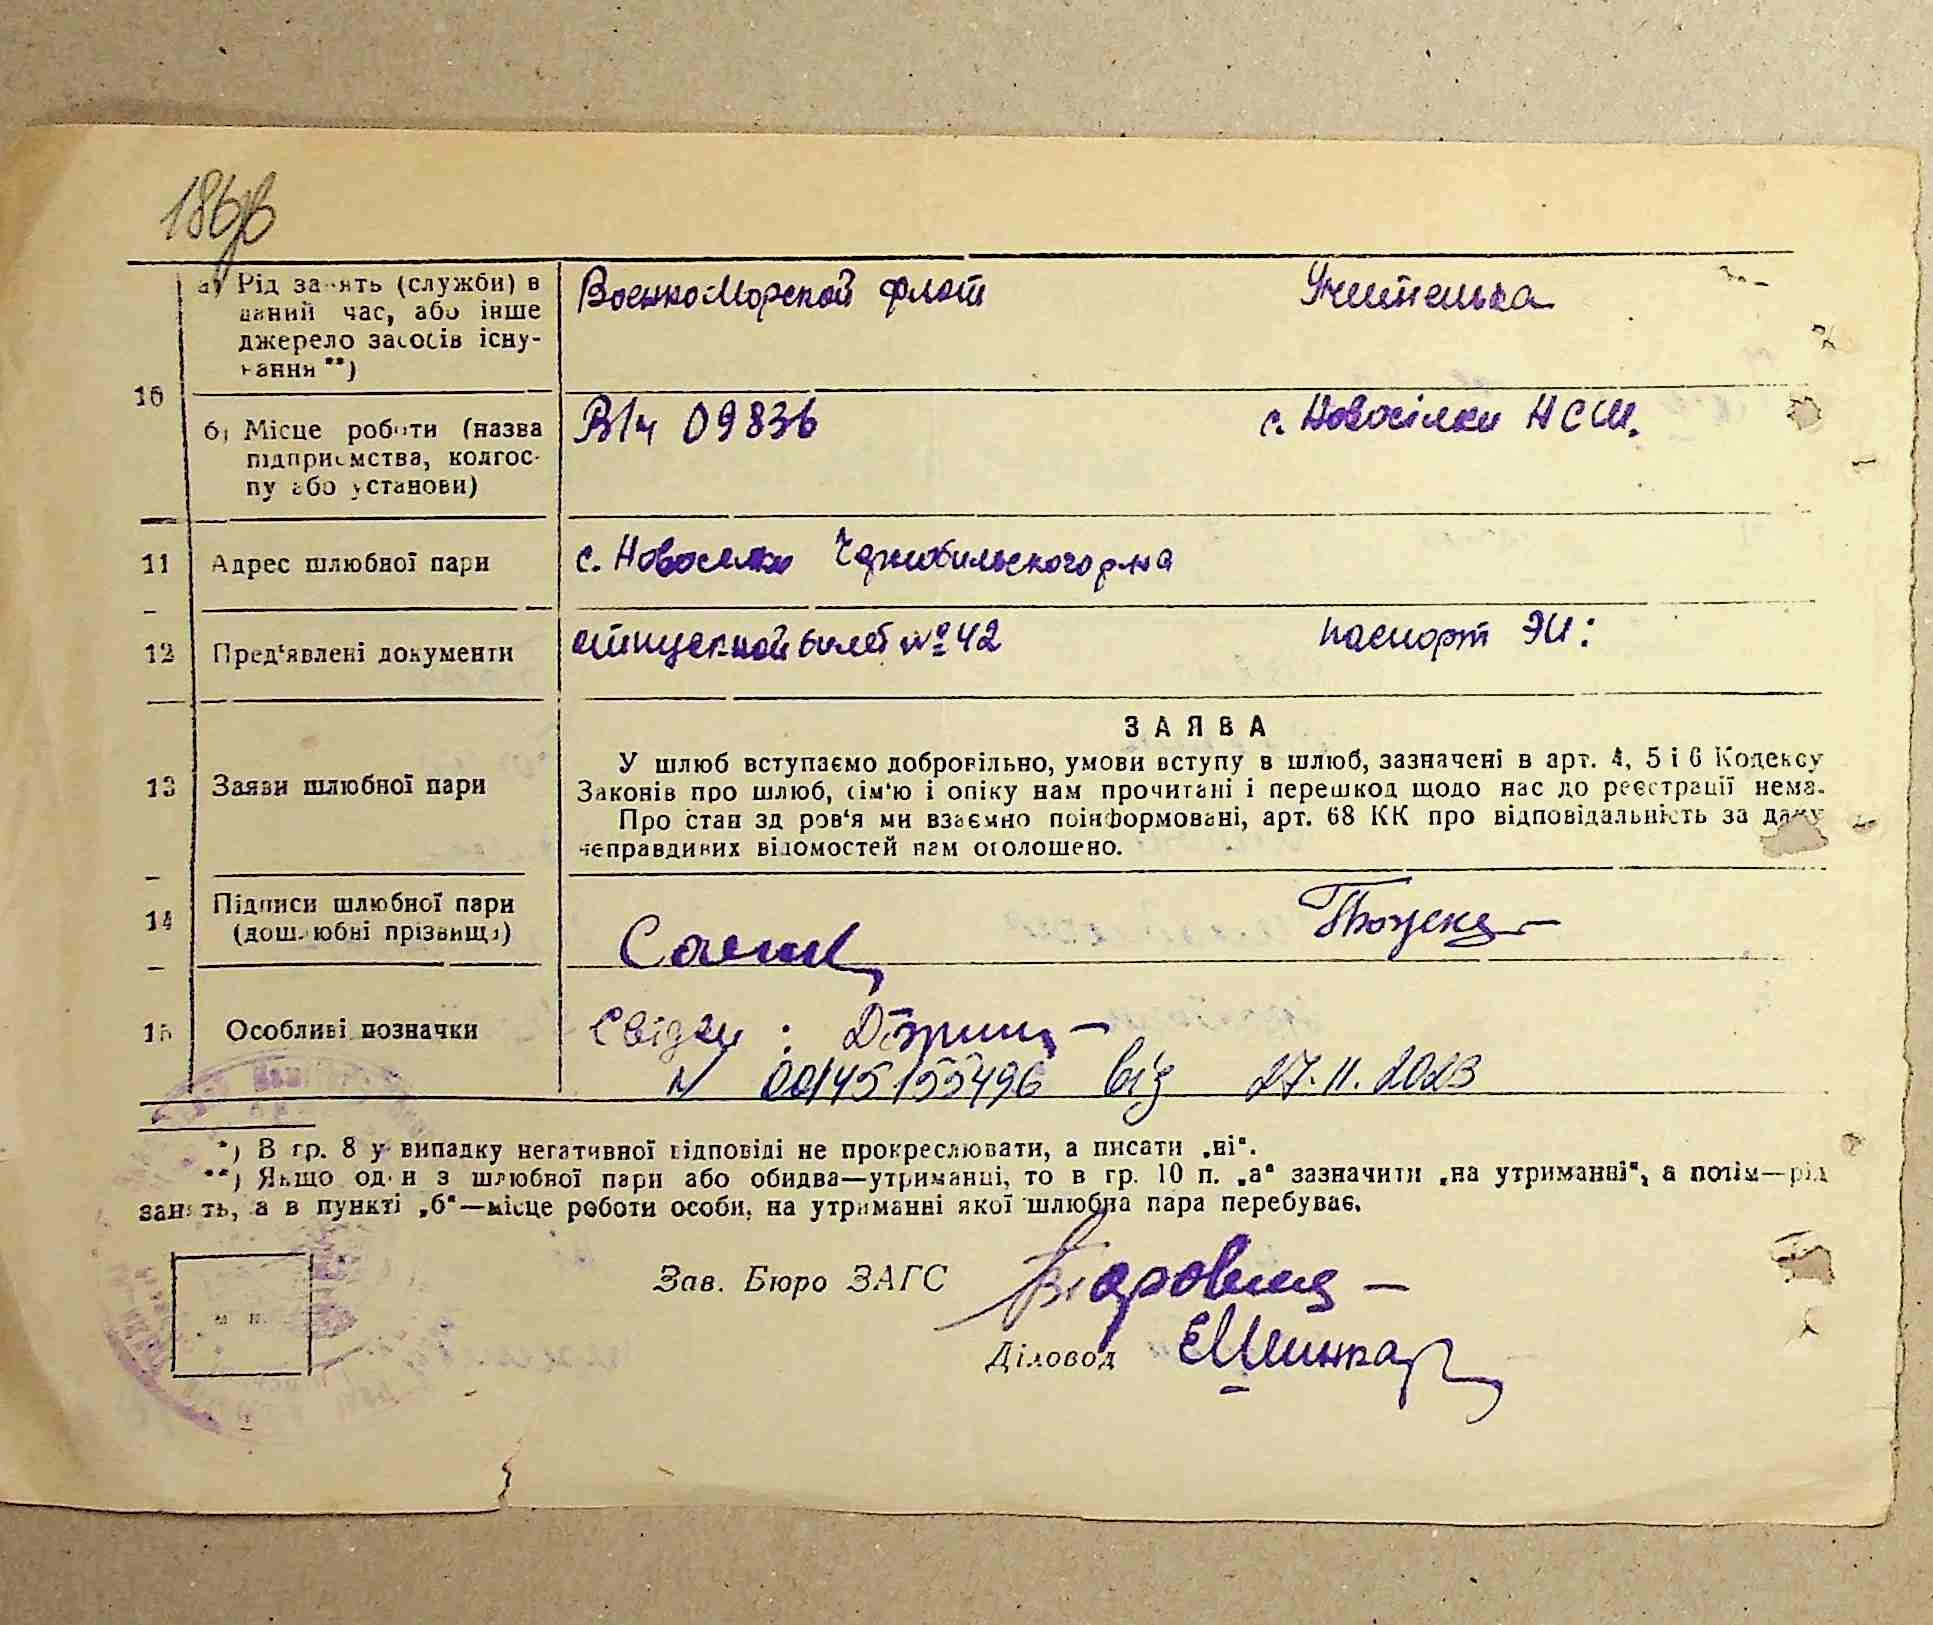 186
а) Рід занять (служби) в
даний час, або інше
джерело засобів існу-
вання **)
Военно Морской флот
Учителька
10
б) Місце роботи (назва
підприємства, колгос-
пу або установи)
В/ч 09836
с. Новосілки НСШ.
11 Адрес шлюбної пари
с. Новоселки Чернобильского р-на
12 Пред'явлені документи
отпускной билет № 42
паспорт ЭИ:
13 Заяви шлюбної пари
ЗАЯВА
У шлюб вступаємо добровільно, умови вступу в шлюб, зазначені в арт. 4, 5 і 6 Кодексу
Законів про шлюб, сім'ю і опіку нам прочитані і перешкод щодо нас до реєстрації нема.
Про стан здоров'я ми взаємно поінформовані, арт. 68 КК про відповідальність за дачу
неправдивих відомостей нам оголошено.
14 Підписи шлюбної пари
(дошлюбні прізвища)
15 Особливі позначки
Свідки :
N 00145155496 від 27.11.2023
*) В гр. 8 у випадку негативної відповіді не прокреслювати, а писати „ні“.
**) Якщо один з шлюбної пари або обидва—утриманці, то в гр. 10 п. „а“ зазначити „на утриманні“, а потім—рід
занять, а в пункті „б“—місце роботи особи, на утриманні якої шлюбна пара перебуває.
м п.
Зав. Бюро ЗАГС
Діловод